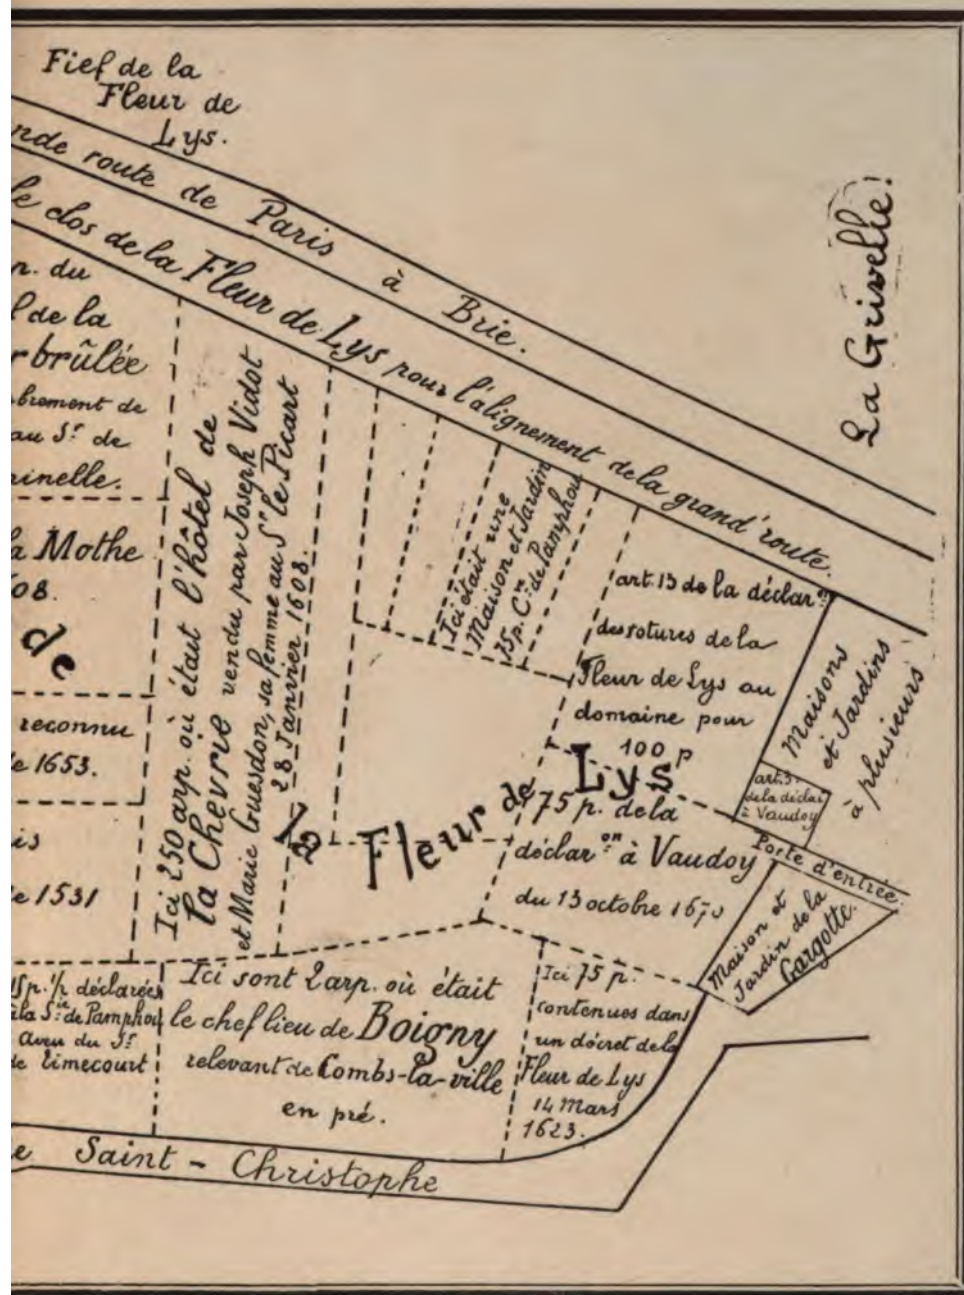 Fief de la
Fleur de
Lys.
nde route de Paris à Brie.
le clos de la Fleur de Lys pour l'alignement de la grand'route.
La Grivelle!
du
de la
brûlée
brement de
au Sr. de
inelle.
a Mothe
08.
de
reconnu
e 1653.
is
e 1531
Ici 250 arp. où était l'hôtel de
la Chevrie vendu par Joseph Vidot
et Marie Guesdon, sa femme au Sr. le Picart
28 Janvier 1608.
Ici était une
Maison et Jardin
75 p. Cn. de Pamphou
art. 13 de la déclaron
des rotures de la
Fleur de Lys au
domaine pour
100 p
Maisons
et Jardins
à plusieurs
art. 3.
de la déclar
à Vaudoy
la Fleur de Lys
75 p. de la
déclar.on à Vaudoy
du 13 octobre 1670
Porte d'entrée.
Maison et
Jardin de la
Gargotte.
15 p. 1/2 déclarées
à la Sie. de Pamphou
aveu du Sr.
de Limecourt
Ici sont 2 arp. où était
le chef lieu de Boigny
relevant de Combs-la-ville
en pré.
Ici 75 p.
contenues dans
un décret de la
Fleur de Lys
14 Mars
1623.
e Saint-Christophe